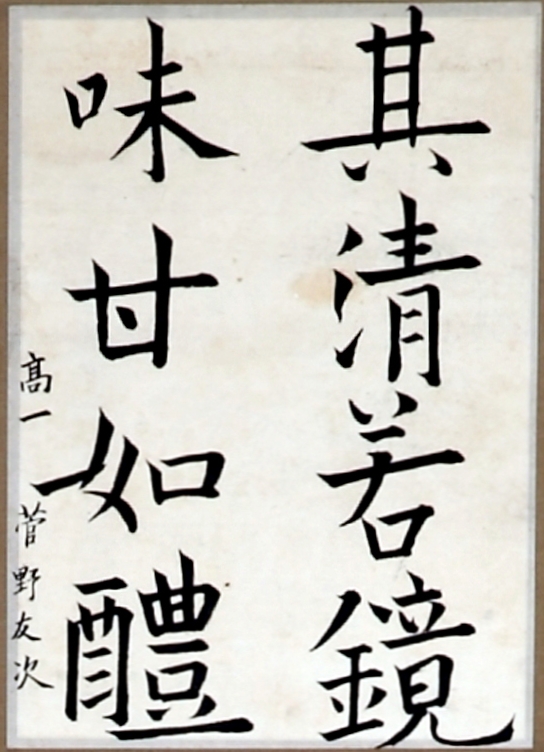 其清若鏡
味甘如醴
髙一 菅野友次